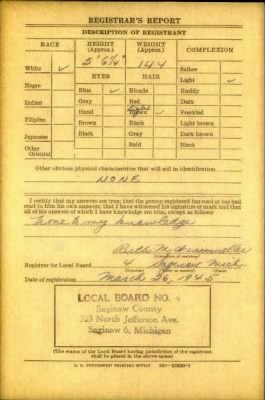 REGISTRAR'S REPORT
DESCRIPTION OF REGISTRANT
RACE HEIGHT (Approx.) WEIGHT (Approx.) COMPLEXION
5' 6½" 144 Sallow
White ✓ EYES HAIR Light ✓
Negro Blue ✓ Blonde Ruddy
Indian Gray Red Dark
Hazel Brown ✓ Freckled
Filipino Brown Black Light brown
Japanese Black Gray Dark brown
Other Oriental Bald Black
Other obvious physical characteristics that will aid in identification
NONE
I certify that my answers are true; that the person registered has read or has had
read to him his own answers; that I have witnessed his signature or mark and that
all of his answers of which I have knowledge are true, except as follows:
None to my knowledge
Ruth
Registrar for Local Board 4 Saginaw Mich
Date of registration March 26, 1945
LOCAL BOARD NO. 4
Saginaw County
North Jefferson Ave.
Saginaw 6, Michigan
(The stamp of the Local Board having jurisdiction of the registrant
shall be placed in the above space)
U. S. GOVERNMENT PRINTING OFFICE